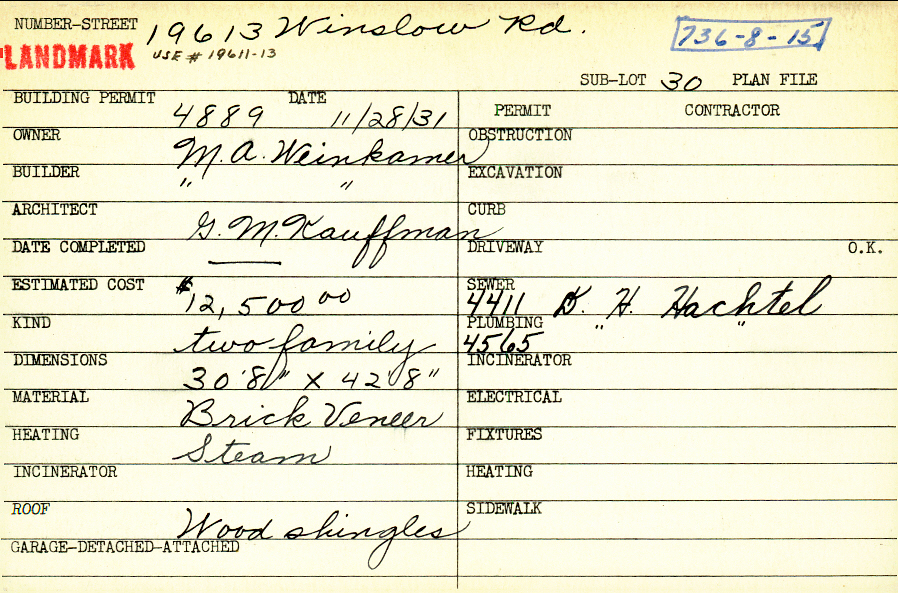 NUMBER-STREET 19613 Winslow Rd. 736-8-15
LANDMARK USE # 19611-13
SUB-LOT 30 PLAN FILE
BUILDING PERMIT 4889 DATE 11/28/31 PERMIT CONTRACTOR
OWNER M. A. Weinkamer OBSTRUCTION
BUILDER " " EXCAVATION
ARCHITECT G. M. Kauffman CURB
DATE COMPLETED — DRIVEWAY O.K.
ESTIMATED COST $12,500 00 SEWER 4411 D. H. Hachtel
KIND two family PLUMBING 4565 " "
DIMENSIONS 30'8" X 42'8" INCINERATOR
MATERIAL Brick Veneer ELECTRICAL
HEATING Steam FIXTURES
INCINERATOR HEATING
ROOF Wood shingles SIDEWALK
GARAGE-DETACHED-ATTACHED